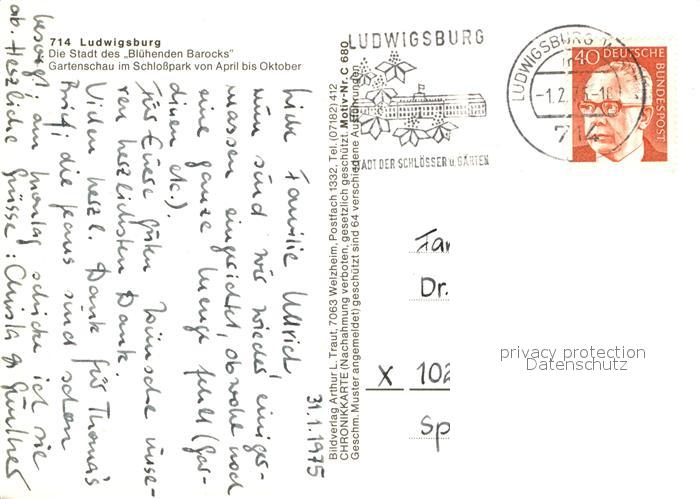 714 Ludwigsburg
Die Stadt des „Blühenden Barocks“
Gartenschau im Schloßpark von April bis Oktober
31.1.1975
Liebe Familie Ullrich,
nun sind wir wieder einiger-
massen eingerichtet, obwohl noch
eine ganze Menge fehlt (Gar-
dinen etc.).
Für Euere guten Wünsche unse-
ren herzlichsten Dank.
Vielen herzl. Dank für Thomas's
Brief, die Jeans sind schon
besorgt, am Montag schicke ich sie
ab. Herzliche Grüsse: Christa & Günther
Bildverlag Arthur L. Traut, 7063 Welzheim, Postfach 1332, Tel. (07182) 412
CHRONIKKARTE (Nachahmung verboten, gesetzlich geschützt. Motiv-Nr. C 680
Geschm. Muster angemeldet) geschützt sind 64 verschiedene Ausführungen
LUDWIGSBURG
STADT DER SCHLÖSSER u. GÄRTEN
LUDWIGSBURG
-1.2.75-
714
40 DEUTSCHE
BUNDESPOST
Fam
Dr.
X 102
Sp
privacy protection
Datenschutz